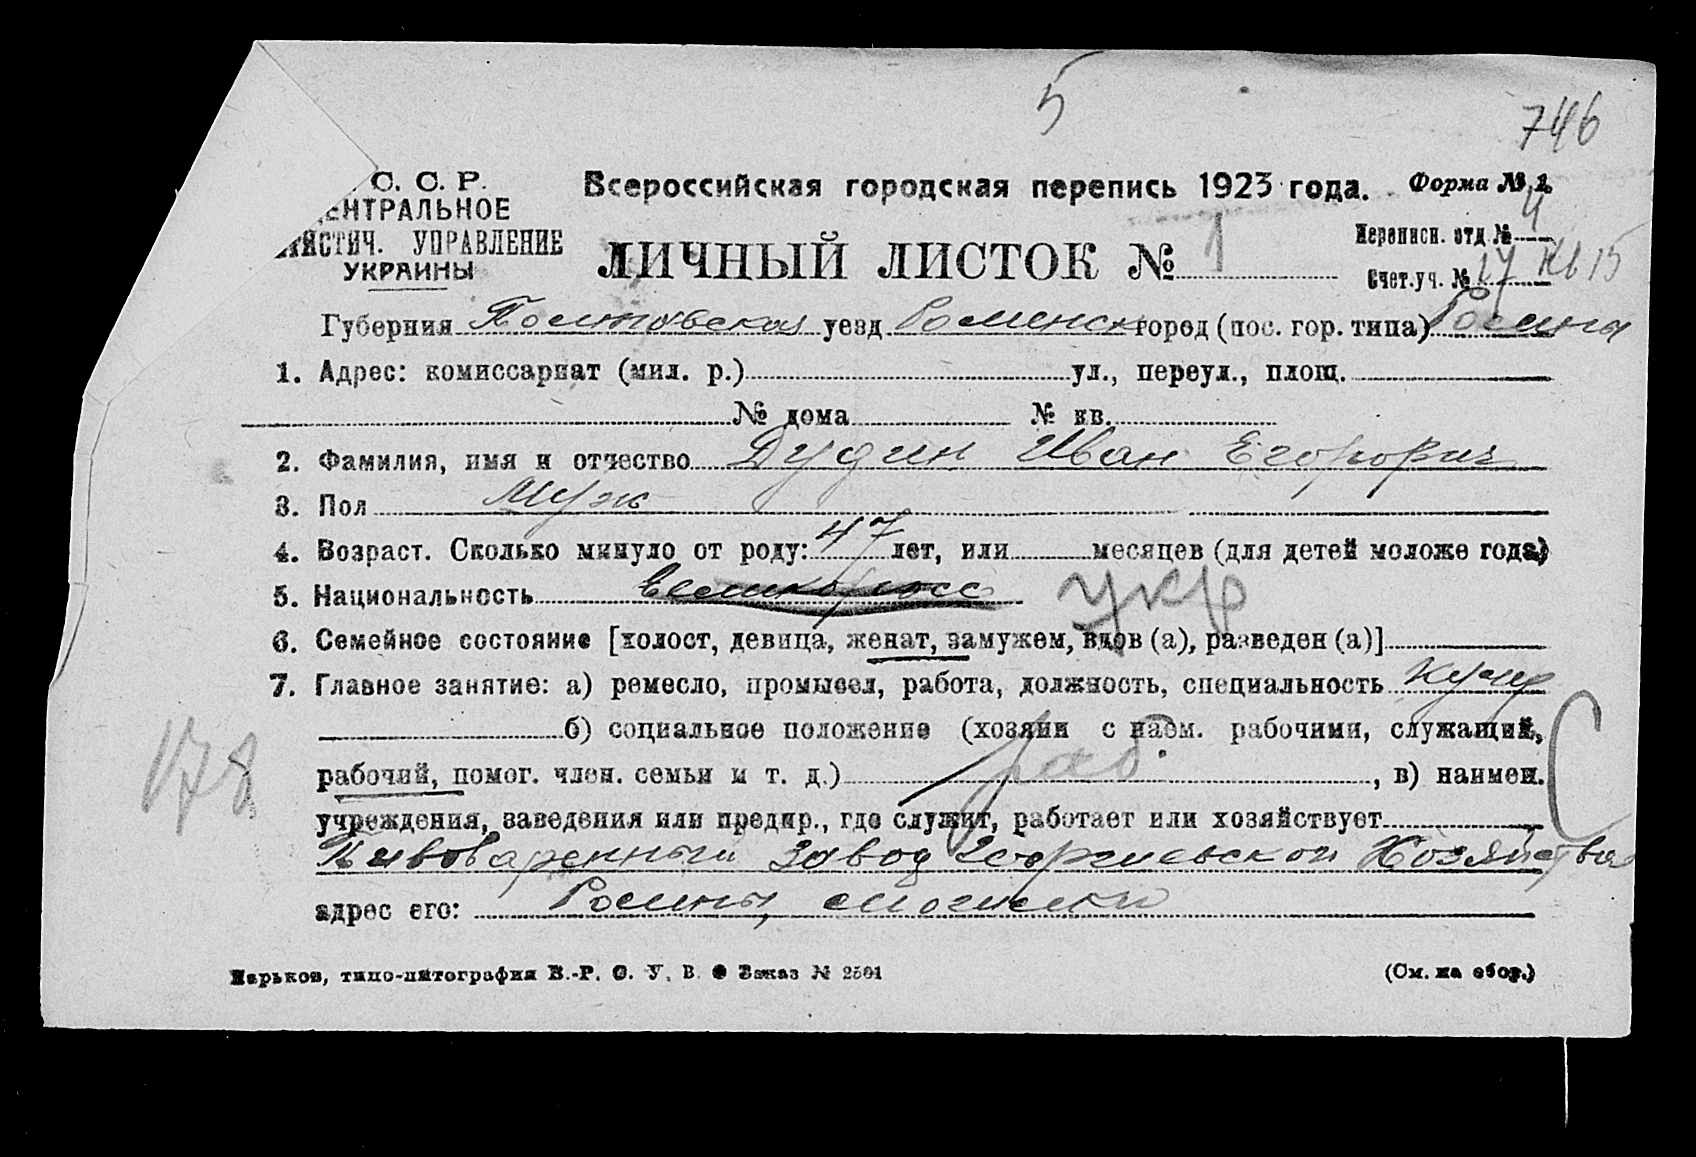 5
746
С. С. Р.
ЕНТРАЛЬНОЕ
ИСТИЧ. УПРАВЛЕНИЕ
УКРАИНЫ
Всероссийская городская перепись 1923 года. Форма № 1
ЛИЧНЫЙ ЛИСТОК № 1
Переписн. отд № 4
Счет.уч. № 17 Кв 15
Губерния Полтавская уезд Роменск город (пос. гор. типа) Ромны
1. Адрес: комиссариат (мил. р.) ул., переул., площ.
№ дома № кв.
2. Фамилия, имя и отчество Дудин Иван Егорович
3. Пол Муж
4. Возраст. Сколько минуло от роду: 47 лет, или месяцев (для детей моложе года)
5. Национальность великоросс укр
6. Семейное состояние [холост, девица, женат, замужем, вдов (а), разведен (а)]
7. Главное занятие: а) ремесло, промысел, работа, должность, специальность Кучер
б) социальное положение (хозяин с наем. рабочими, служащий,
рабочий, помог. член. семьи и т. д.) раб. , в) наимен.
учреждения, заведения или предпр., где служит, работает или хозяйствует
Пивоваренный завод Георгиевской Хозяйства
адрес его: Ромны,
178
С
Харьков, типо-литография В.-Р. О. У. В. Заказ № 2501
(См. на обор.)